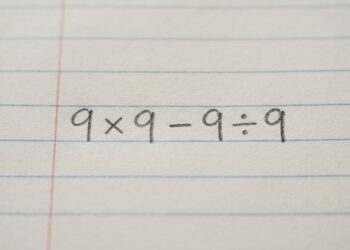 9×9−9÷9